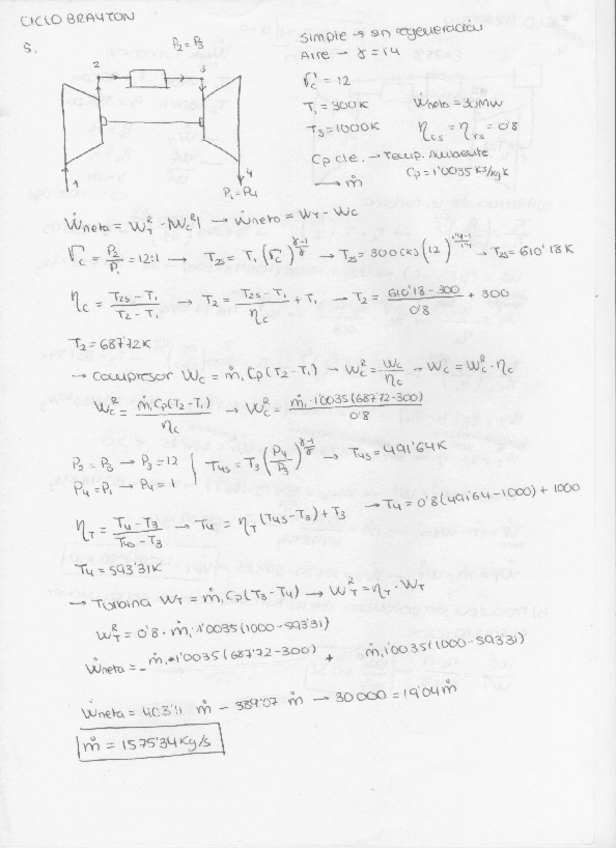 CICLO BRAYTON
5.
P2 = P3
2
3
1
4
P1 = P4
Simple → sin regeneración
Aire – γ = 1'4
rc = 12
T1 = 300K Ẇneta = 30MW
T3 = 1000K ηcs = ηTs = 0'8
Cp cte. → Temp. Ambiente
Cp = 1'0035 KJ/kg K
→ ṁ
Ẇneta = W_T^R - |W_C^R| → Ẇneto = WT - WC
rc = P2/P1 = 12:1 → T2s = T1 (rc)^(γ-1/γ) → T2s = 300(K) (12)^(1'4-1/1'4) → T2s = 610'18K
ηc = (T2s - T1)/(T2 - T1) → T2 = (T2s - T1)/ηc + T1 → T2 = (610'18 - 300)/0'8 + 300
T2 = 687'72K
→ Compresor Wc = ṁ, Cp (T2 - T1) → W_C^R = Wc/ηc → Wc = W_C^R · ηc
W_C^R = ṁ, Cp (T2 - T1)/ηc → W_C^R = ṁ, 1'0035 (687'72 - 300)/0'8
P2 = P3 → P3 = 12
P4 = P1 → P4 = 1
T4s = T3 (P4/P3)^(γ-1/γ) → T4s = 491'64K
ηT = (T4 - T3)/(T4s - T3) → T4 = ηT (T4s - T3) + T3 → T4 = 0'8 (491'64 - 1000) + 1000
T4 = 593'31K
→ Turbina WT = ṁ, Cp (T3 - T4) → W_T^R = ηT · WT
W_T^R = 0'8 · ṁ, 1'0035 (1000 - 593'31)
Ẇneta = - ṁ, 1'0035 (687'72 - 300) + ṁ, 1'0035 (1000 - 593'31)
Ẇneta = 408'11 ṁ - 389'07 ṁ → 30000 = 19'04 ṁ
ṁ = 1575'34 Kg/s